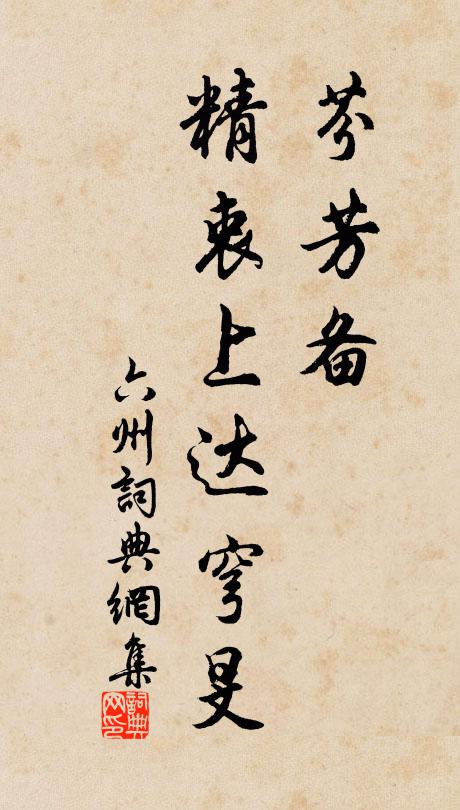 芬芳备
精衷上达穹旻
六州詞典網集
詞典
网印